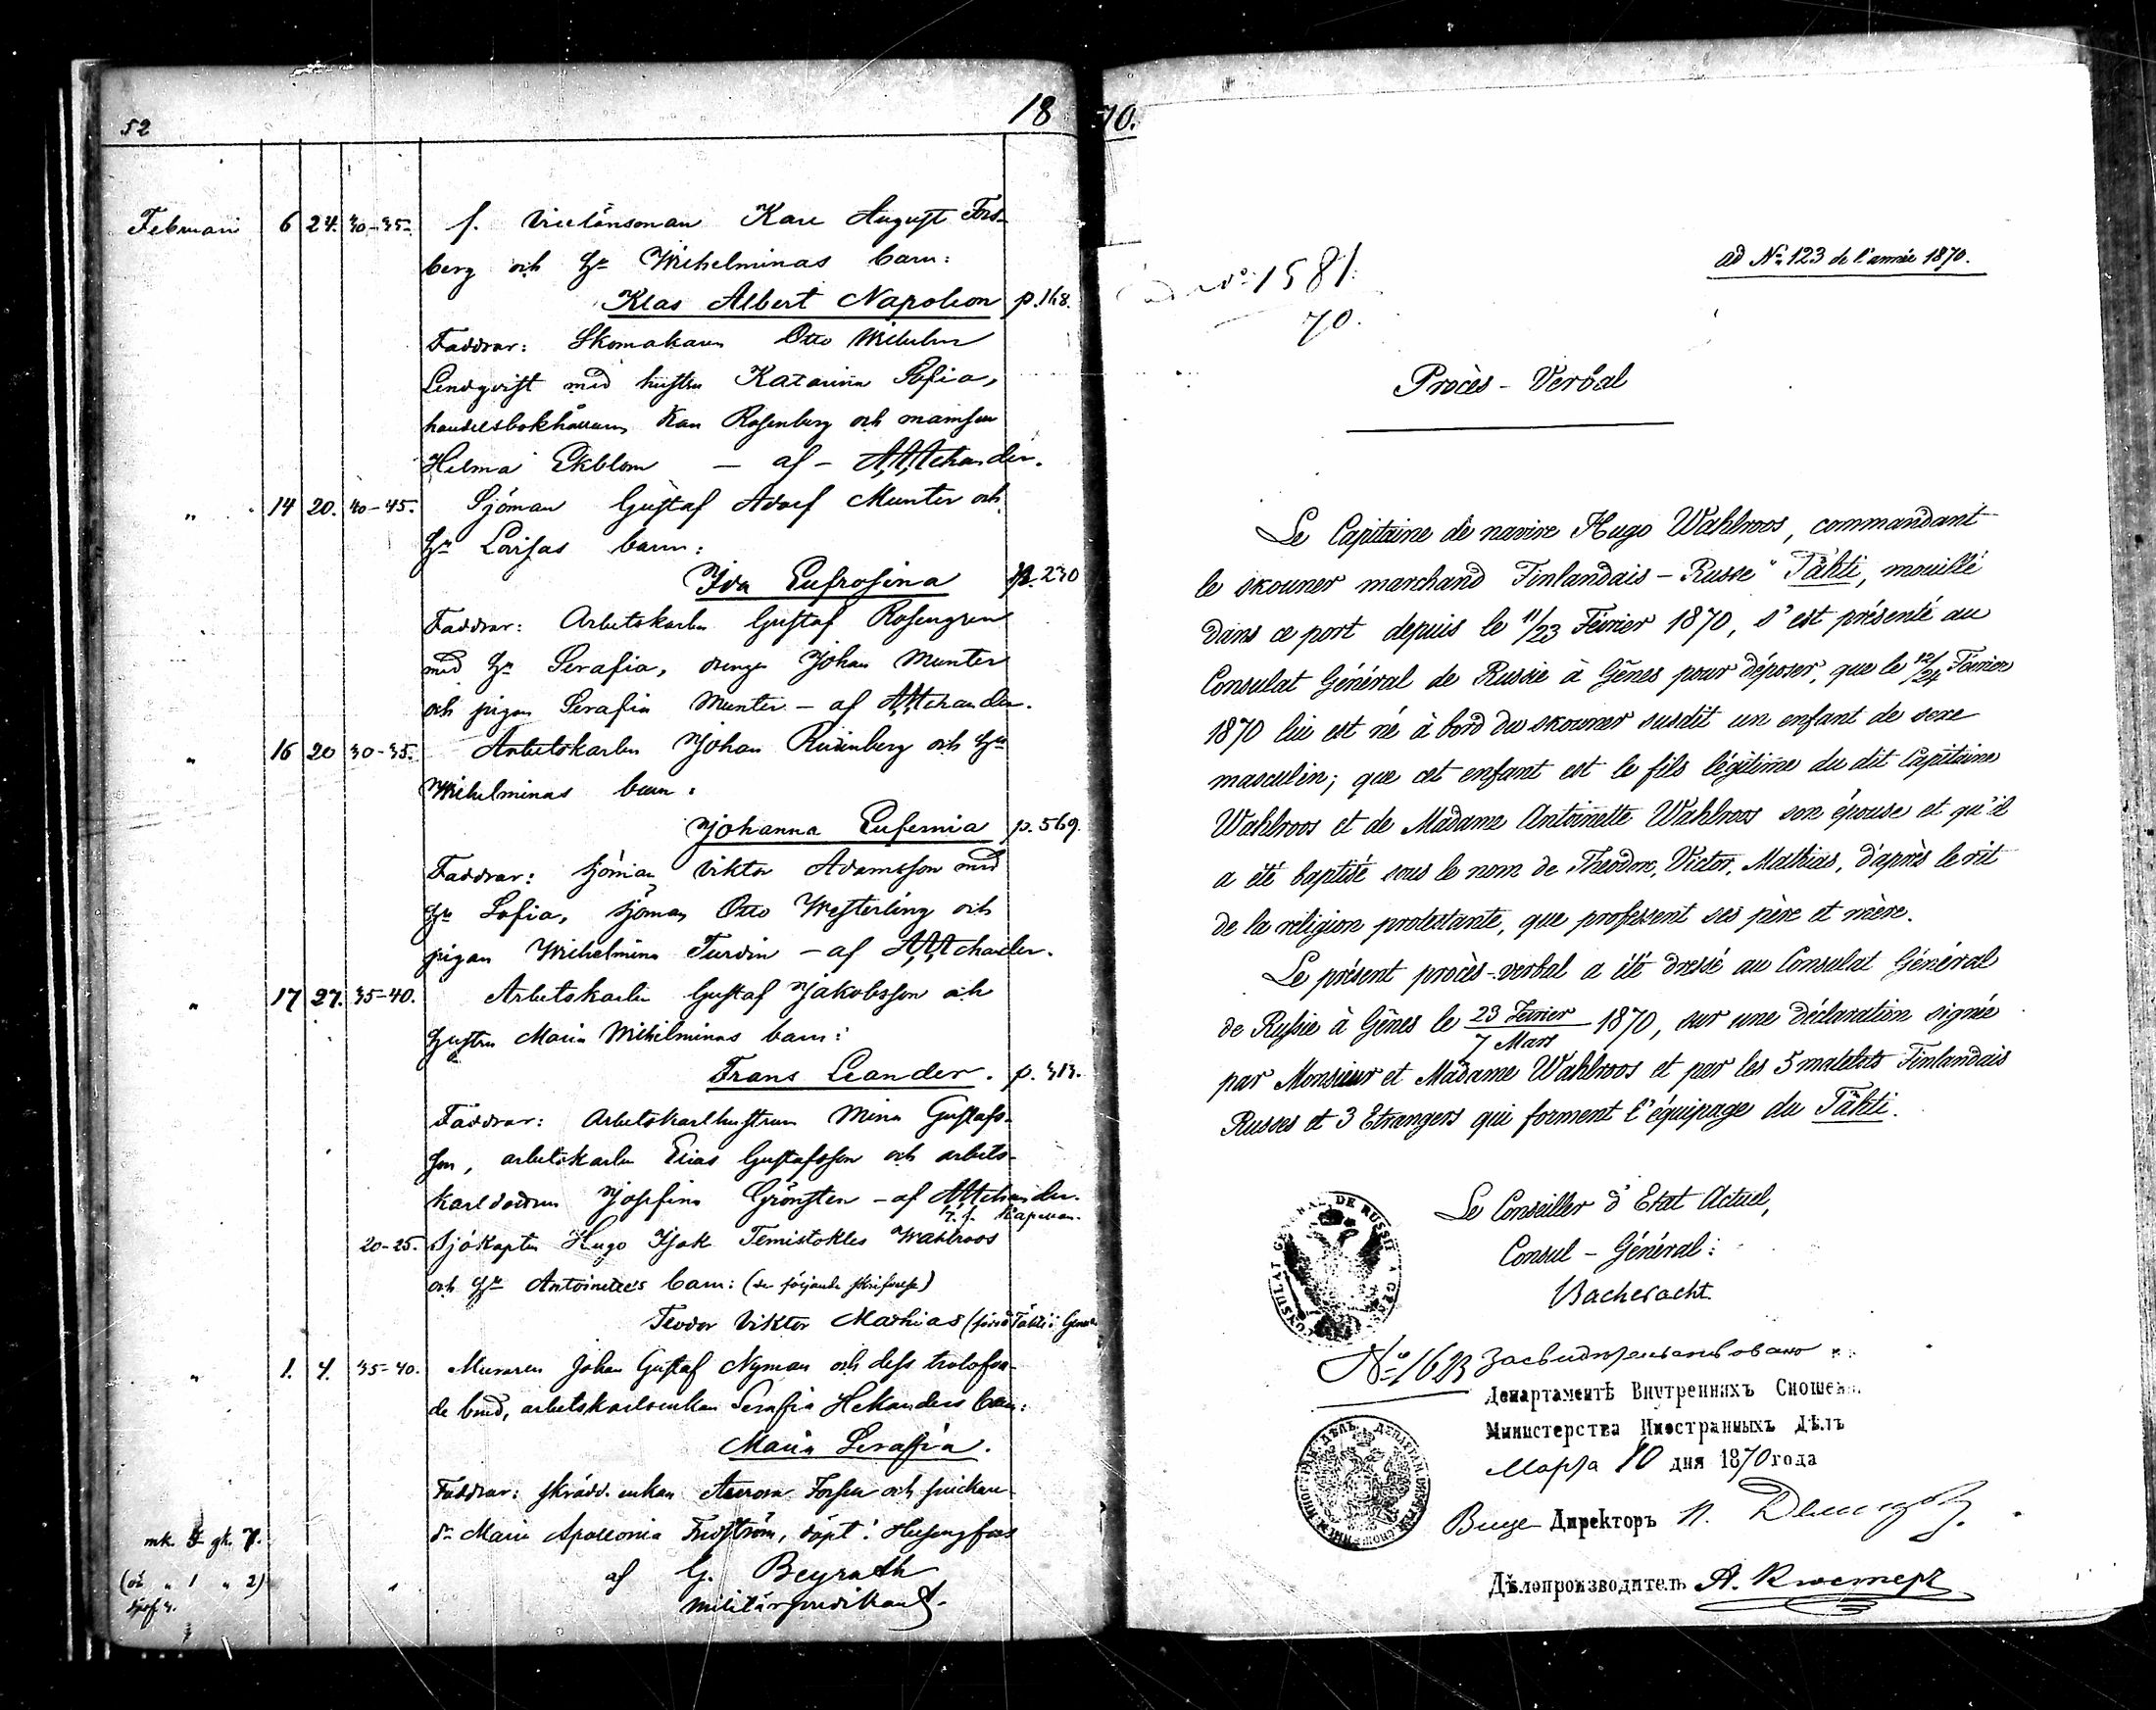 52
18
70.
Februari 6 24. 30-35. f. Vicelänsman Karl August Fors-
berg och Hu Wilhelminas barn:
Klas Albert Napoleon p. 168.
Faddrar: Skomakaren Otto Wilhelm
Lindqvist med hustru Katarina Sofia,
handelsbokhållaren Karl Rosenberg och mamsell
Hilma Ekblom — af —
" 14 20. 40-45. Sjöman Gustaf Adolf Munter och
Hu Lovisas barn:
Ida Eufrosina p. 230
Faddrar: Arbetskarlen Gustaf Rosengren
med Hu Serafia, drengen Johan Munter
och pigan Serafia Munter – af
" 16 20 30-35. Arbetskarlen Johan Rudenberg och Hu
Wilhelminas barn:
Johanna Eufemia p. 569.
Faddrar: sjöman Viktor Adamsson med
Hu Sofia, sjöman Otto Westerling och
pigan Wilhelmina Turdin – af
" 17 27. 35-40. Arbetskarlen Gustaf Jakobsson och
Hustru Maria Wilhelminas barn:
Frans Leander. p. 313.
Faddrar: Arbetskarlhustrun Mina Gustafs-
son, arbetskarlen Elias Gustafsson och arbets-
karldottren Josefina Grönsten – af
t. f. Kapellan.
20-25. Sjökapten Hugo Isak Temistokles Wahlroos
och Hu Antoinettes barn: (se följande
Teodor Viktor Mathias (född å Tähti i Genua
" 1. 4. 35-40. Muraren Johan Gustaf Nyman och dess trolofva-
de brud, arbetskarlsenkan Serafia Hekanders barn:
Maria Serafia.
Faddrar: skrädd. enkan Aurora Forsen och snickare
dr Maria Apollonia döpt i Helsingfors
af G. Beyrath
militärpredikant.
ad No 1581.
70.
ad No. 123 de l'année 1870.
Procès - Verbal
Le Capitaine de navire Hugo Wahlroos, commandant
le skouner marchand Finlandais - Russe " Tähti, mouillé
dans ce port depuis le 11/23 Février 1870, s'est présenté au
Consulat Général de Russie à Gênes pour déposer, que le 12/24 Février
1870 lui est né à bord du skouner susdit un enfant de sexe
masculin; que cet enfant est le fils légitime du dit Capitaine
Wahlroos et de Madame Antoinette Wahlroos son épouse et qu'il
a été baptisé sous le nom de Théodore, Victor, Mathias, d'après le rit
de la réligion protestante, que professent ses père et mère.
Le présent procès-verbal a été dressé au Consulat Général
de Russie à Gênes le 23 Février / 7 Mars 1870, sur une déclaration signée
par Monsieur et Madame Wahlroos et par les 5 matelots Finlandais
Russes et 3 Etrangers qui forment l'équipage du Tähti.
Le Conseiller d'Etat Actuel,
Consul - Général:
Bacheracht
CONSULAT GENERAL DE RUSSIE A GENES
No 1623 Засвидѣтельствовано въ
Департаментѣ Внутреннихъ Сношеній
Министерства Иностранныхъ Дѣлъ
Марта 10 дня 1870 года
Вице Директоръ
Дѣлопроизводитель А. Кюстеръ
mk. gk. 7.